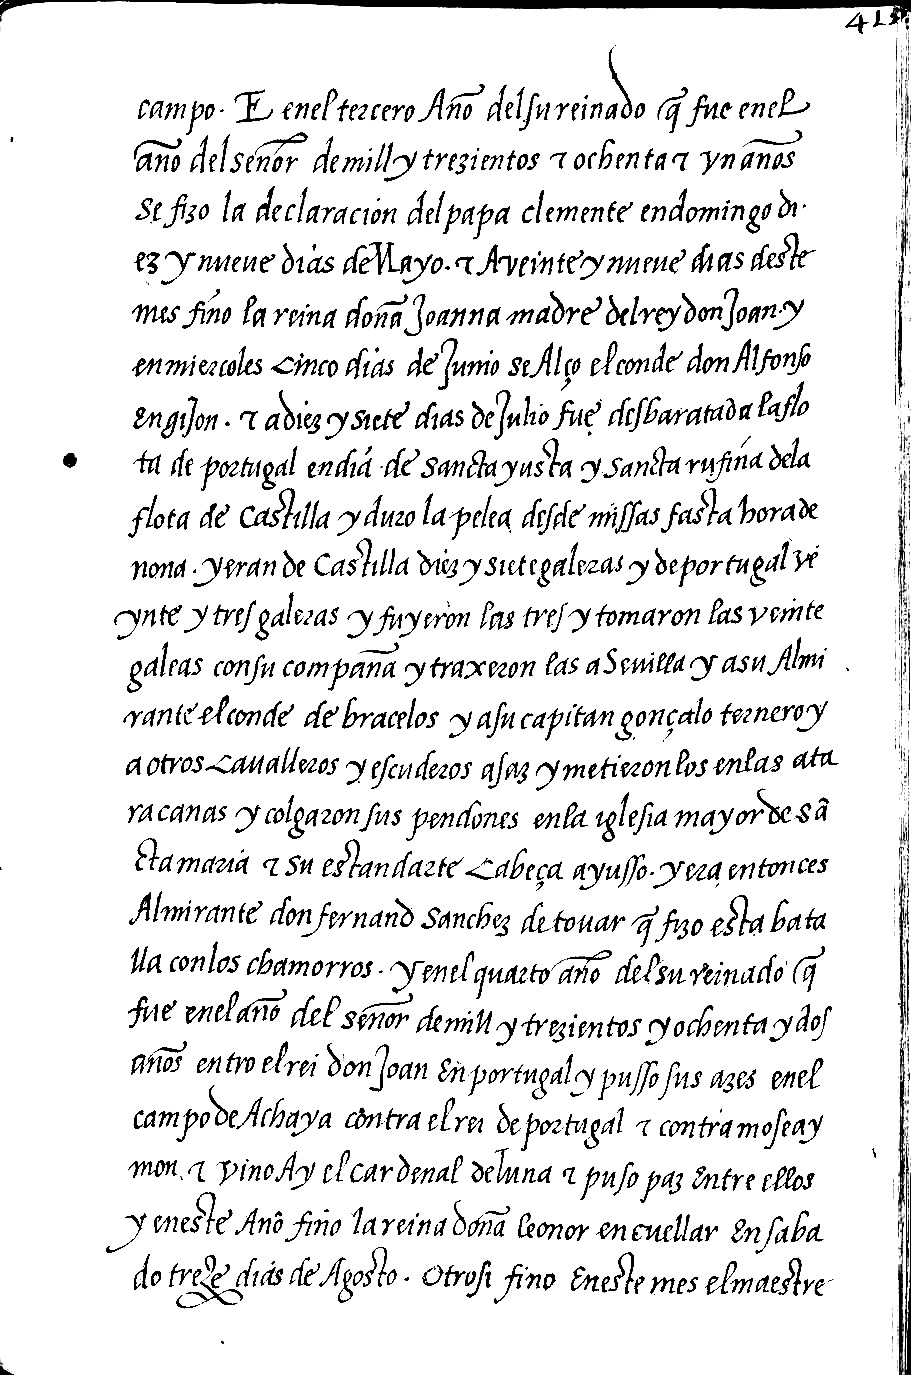 415
campo. E enel tercero Año del su reinado q̃ fue enel
año del señor de mill y trezientos ⁊ ochenta ⁊ vn años
se fizo la declaracion del papa clemente en domingo di
ez y nueue dias de Mayo. ⁊ A veinte y nueue dias deste
mes fino la reina doña Joanna madre del rey don Joan. y
en miercoles cinco dias de Junio se Alço el conde don Alfonso
En giJon. ⁊ a diez y siete dias de Julio fue desbaratada la flo
ta de portugal en diá de sancta yusta y sancta rufina de la
flota de Castilla y duro la pelea desde missas fasta hora de
nona. y eran de Castilla diez y siete galeras y de portugal vé
ynte y tres galeras y fuyeron las tres y tomaron las veinte
galeas con su compaña y traxeron las a Seuilla y a su Almi
rante el conde de bracelos y a su capitan gonçalo ternero y
a otros caualleros y escuderos asaz y metieron los en las ata
racanas y colgaron sus pendones en la iglesia mayor de sã
cta maria ⁊ su estandarte cabeça ayusso. y era entonces
Almirante don fernand sanchez de touar q̃ fizo esta bata
lla con los chamorros. y enel quarto año del su reinado q̃
fue enel año del señor de mill y trezientos y ochenta y dos
años entro el rei don Joan En portugal y pusso sus azes enel
campo de Achaya contra el rei de portugal ⁊ contra mose ay
mon ⁊ vino Ay el cardenal de luna ⁊ puso paz Entre ellos
y en este Año fino la reina doña leonor en cuellar En saba
do treze dias de Agosto. Otrosi fino En este mes el maestre